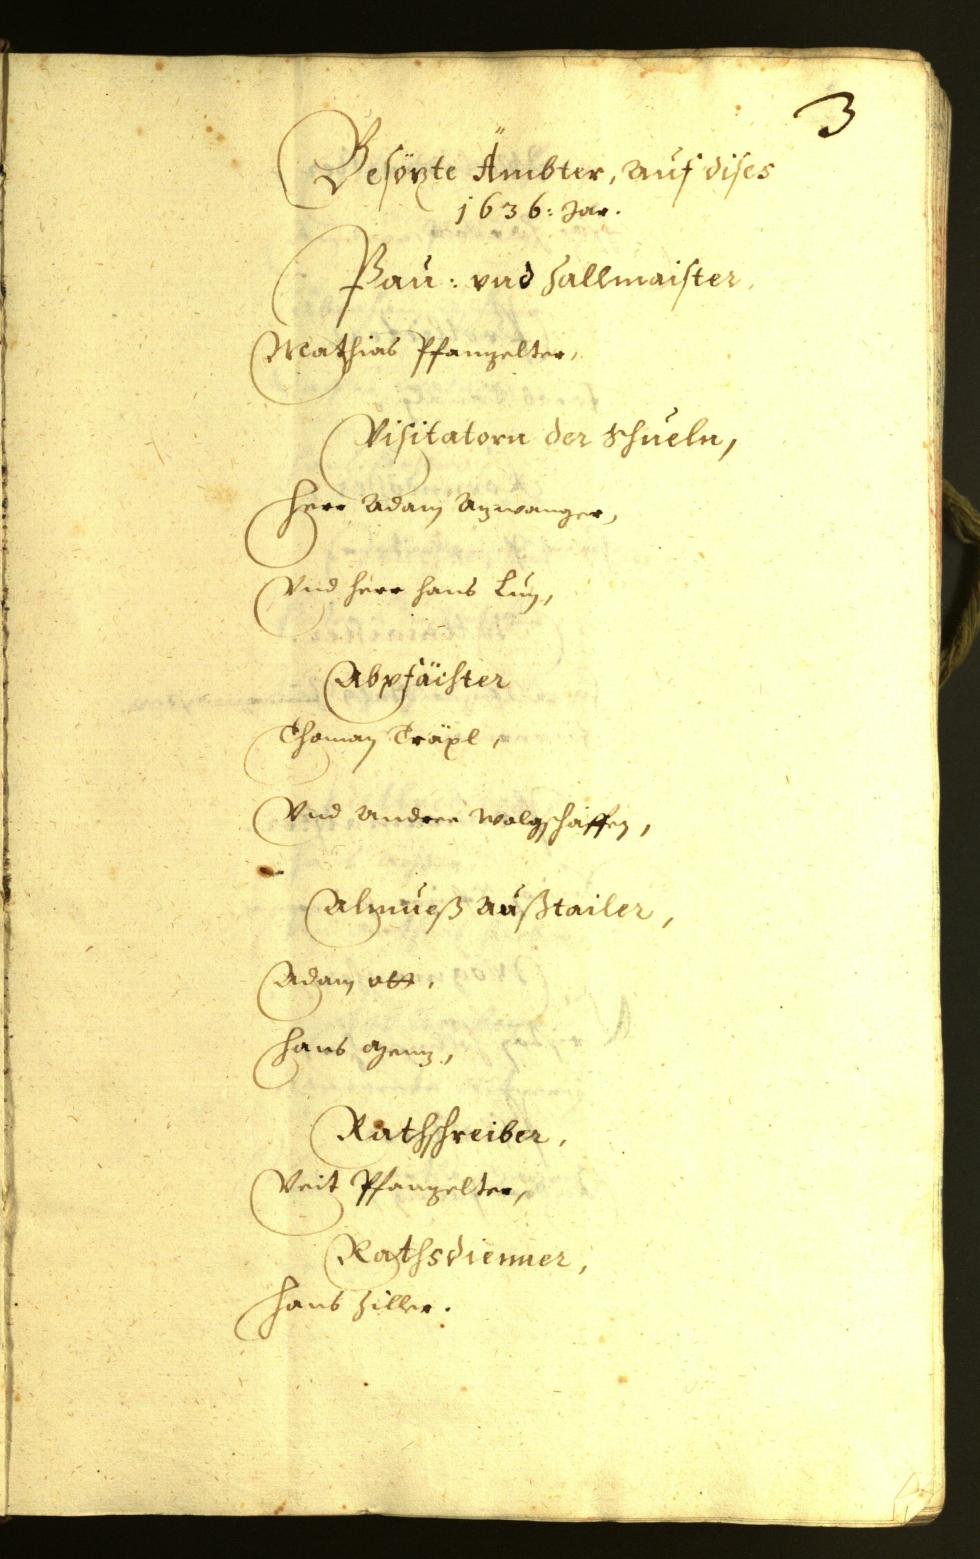 3
Besözte Ämbter, auf dises
1636: Jar.
Pau: vnd Zallmaister,
Mathias Pfanzelter,
Visitatorn der Schueln,
Herr Adam
Vnd Herr Hans Lun,
Abpfächter
Thoman Träpl,
Vnd Andree Wolgschaffen,
Almueß außtailer,
Adam ott,
Hans
Rathschreiber,
Veit Pfanzelter,
Rathsdienner,
Hans Ziller.